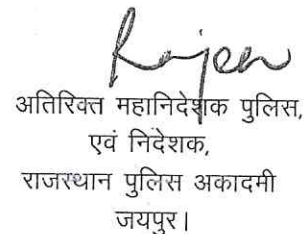 Rajeev
अतिरिक्त महानिदेशक पुलिस,
एवं निदेशक,
राजस्थान पुलिस अकादमी
जयपुर।